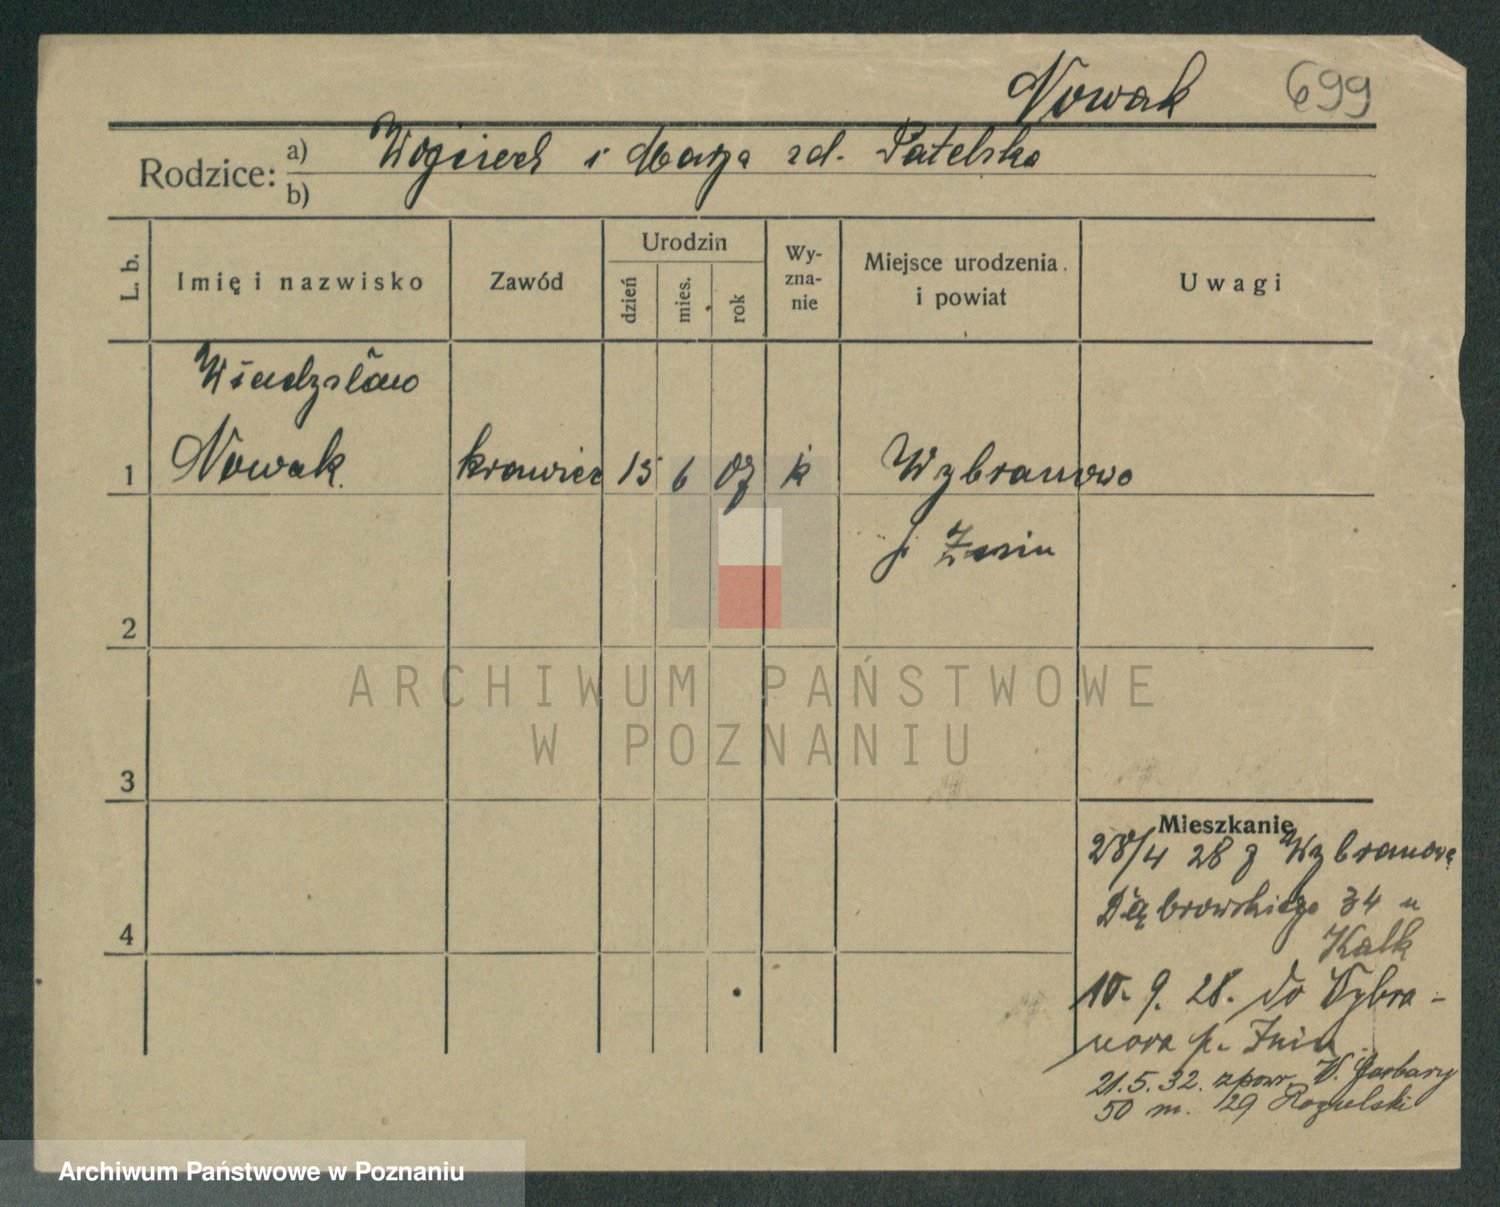 Nowak 699
Rodzice: a) Wojciech i Marja zd. Patelska
b)
L. b. Imię i nazwisko Zawód Urodzin dzień mies. rok Wy-zna-nie Miejsce urodzenia i powiat Uwagi
Władysław
1 Nowak krawiec 15 6 07 k Wybranowo
p. Żnin
2
ARCHIWUM PAŃSTWOWE
W POZNANIU
3
Mieszkanie
28/4 28 z Wybranowa
Dąbrowskiego 34 u
4
Kalk
10. 9. 28. do Wybra-
nowa p. Żnin
21.5.32. zpowr. W. Garbary
50 m. 29
Archiwum Państwowe w Poznaniu